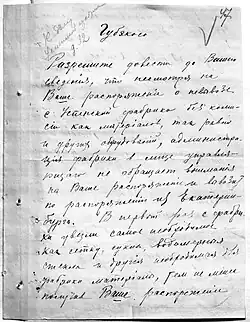 47
Губякого
Разрешите довести до Вашего
сведения, что несмотря на
Ваше распоряжение о невывозе
с Успенской фабрики без комис-
как материалов, так равно
и других оборудований, администра-
ция фабрики в лице управля-
ющего не обращает внимания
на Ваше распоряжение и вывозит
по распоряжению из Екатерин-
бурга. В первый раз с фабри-
ки увезли самое необходимое
как сетку, сукна,
стекла и другия необходимыя для
фабрики материалы, тем не менее
получив Ваше распоряжение